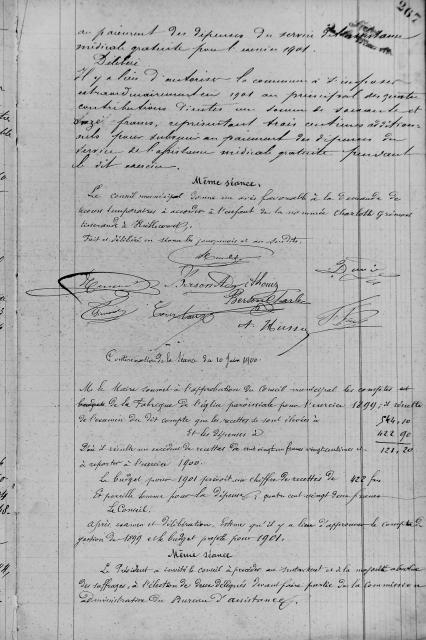 267
au paiement des dépenses du service d'assistance
médicale gratuite pour l'exercice 1901.
Délibère
Il y a lieu d'autoriser la commune à s'imposer
extraordinairement en 1901 au principal des quatre
contributions directes une somme de soixante et
onze francs, représentant trois centimes addition-
nels pour subvenir au paiement des dépenses du
service de l'assistance médicale gratuite pendant
le dit exercice.
Même séance.
Le Conseil municipal donne un avis favorable à la demande de
secours temporaires à accorder à l'enfant de la nommée Charlotte
Fait et délibéré en séance les jour, mois et an susdits.
Berson Charles
Continuation de la séance du 10 Juin 1900.
M. le Maire soumet à l'approbation du Conseil municipal les comptes et
budgets de la Fabrique de l'église paroissiale pour l'exercice 1899; il résulte
de l'examen du dit compte que les recettes se sont élevées à 544,10
Et les dépenses à 422 90
D'où il résulte un excédent de recettes de cent vingt un francs vingt centimes et 121,20
à reporter à l'exercice 1900.
Le budget pour 1901 prévoit un chiffre de recettes de 422 frs
Et pareille somme pour la dépense, quatre cent vingt deux francs
Le Conseil.
Après examen et délibération, Estime qu'il y a lieu d'approuver le compte de
gestion de 1899 et le budget proposé pour 1901.
Même séance
Le Président a invité le conseil à procéder au scrutin secret et à la majorité absolue
des suffrages, à l'élection de deux délégués devant faire partie de la Commission
administrative du Bureau d'assistance.